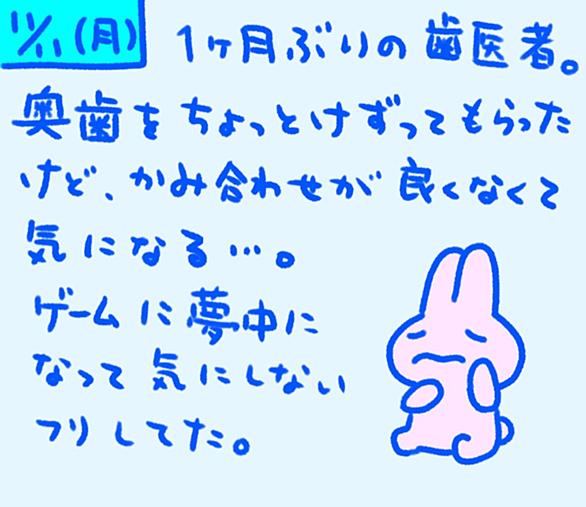 11/11(月)
1ヶ月ぶりの歯医者。
奥歯をちょっとけずってもらった
けど、かみ合わせが良くなくて
気になる…。
ゲームに夢中に
なって気にしない
フリしてた。